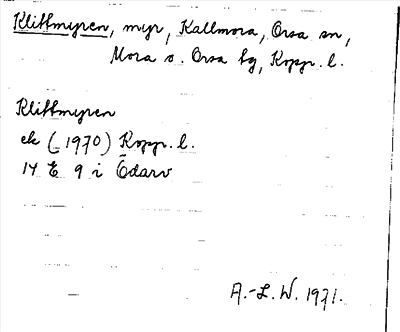 Klittmyren, myr, Kallmora, Orsa sn,
Mora o. Orsa tg, Kopp. l.
Klittmyren
ek (_ 1970) Kopp. l.
14 E 9 i Ödarv
A.-L. W. 1971.